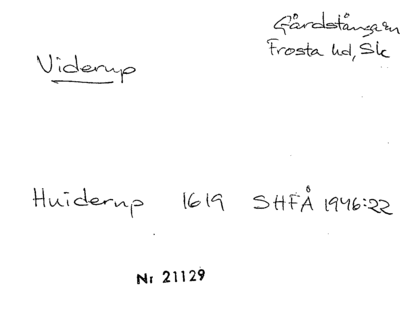 Gårdstånga sn
Frosta hd, Sk
Viderup
Huiderup 1619 SHFÅ 1946:22
Nr 21129